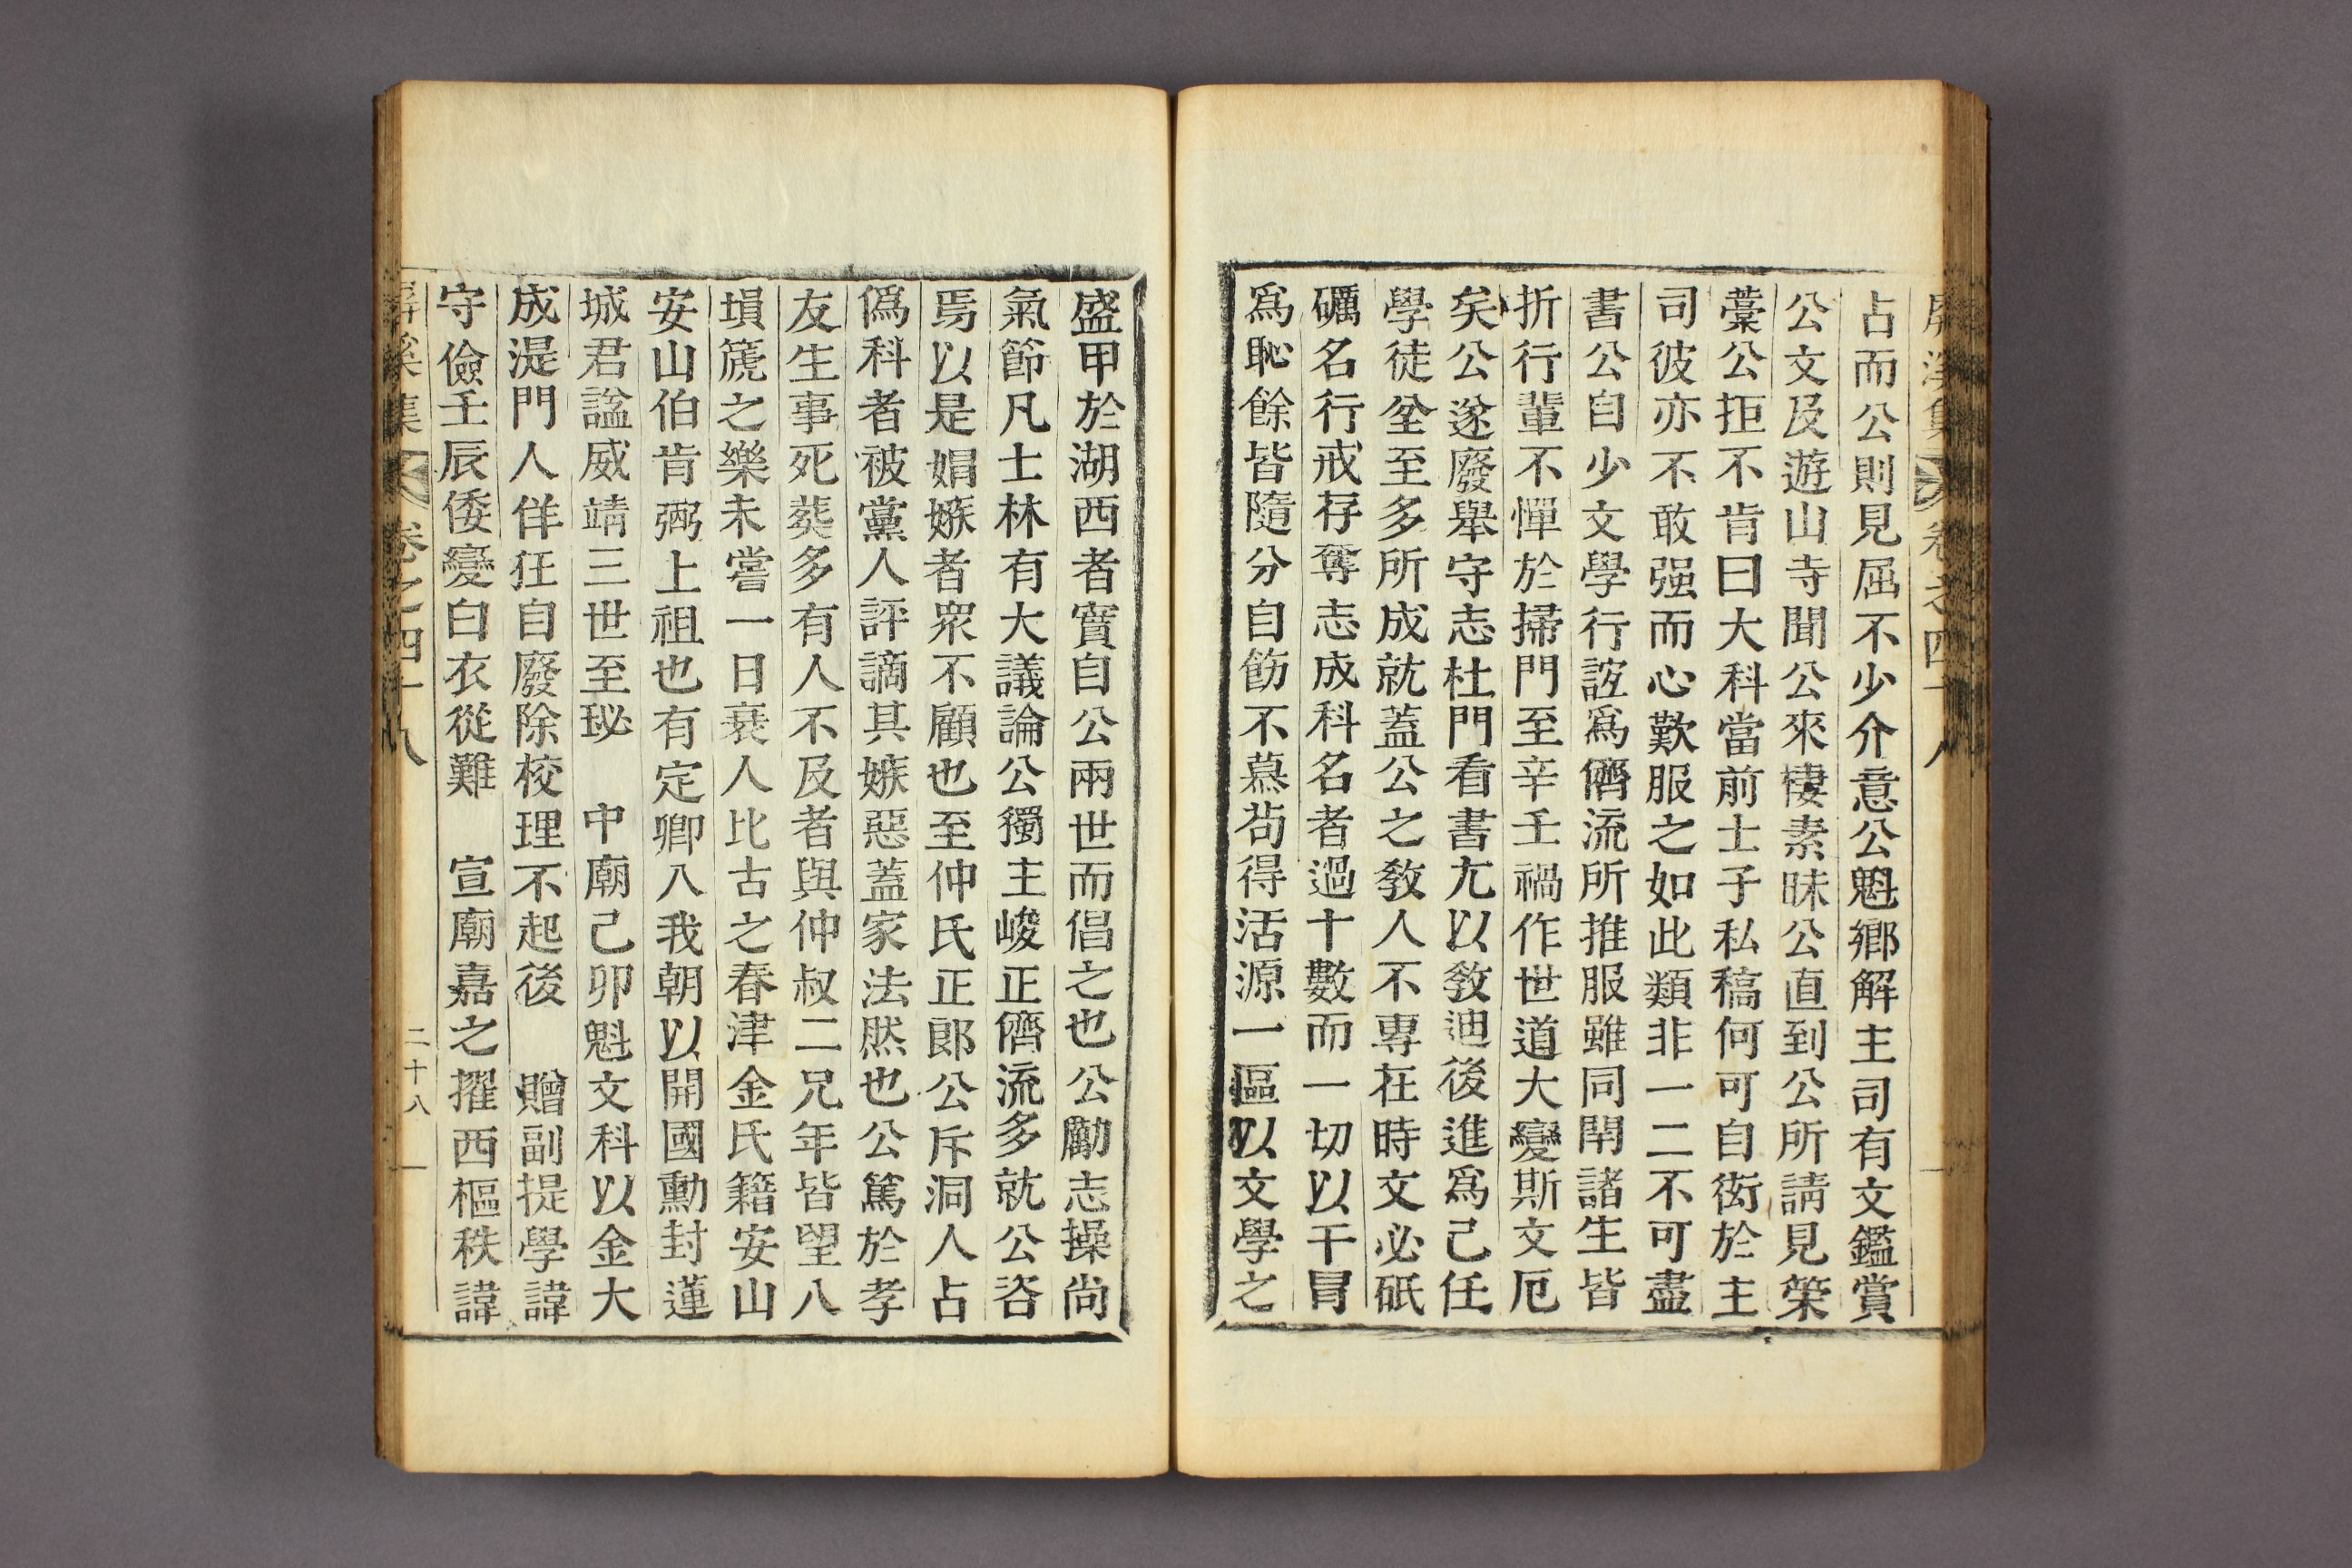 屛溪集 卷之四十八
占而公則見屈不少介意公魁鄕解主司有文鑑賞
公文及遊山寺聞公來棲素昧公直到公所請見策
藁公拒不肯曰大科當前士子私稿何可自衒於主
司彼亦不敢强而心歎服之如此類非一二不可盡
書公自少文學行誼爲儕流所推服雖同閈諸生皆
折行輩不憚於掃門至辛壬禍作世道大變斯文厄
矣公遂廢擧守志杜門看書尤以敎迪後進爲己任
學徒坌至多所成就蓋公之敎人不專在時文必砥
礪名行戒存奪志成科名者過十數而一切以干冒
爲恥餘皆隨分自飭不慕苟得活源一區以文學之
盛甲於湖西者實自公兩世而倡之也公勵志操尙
氣節凡士林有大議論公獨主峻正儕流多就公咨
焉以是娼嫉者衆不顧也至仲氏正郞公斥洞人占
僞科者被黨人評謫其嫉惡蓋家法然也公篤於孝
友生事死葬多有人不及者與仲叔二兄年皆望八
塤篪之樂未嘗一日衰人比古之春津金氏籍安山
安山伯肯弼上祖也有定卿入我朝以開國勳封蓮
城君謚威靖三世至珌 中廟己卯魁文科以金大
成湜門人佯狂自廢除校理不起後 贈副提學諱
守儉壬辰倭變白衣從難 宣廟嘉之擢西樞秩諱
屛溪集 卷之四十八 二十八